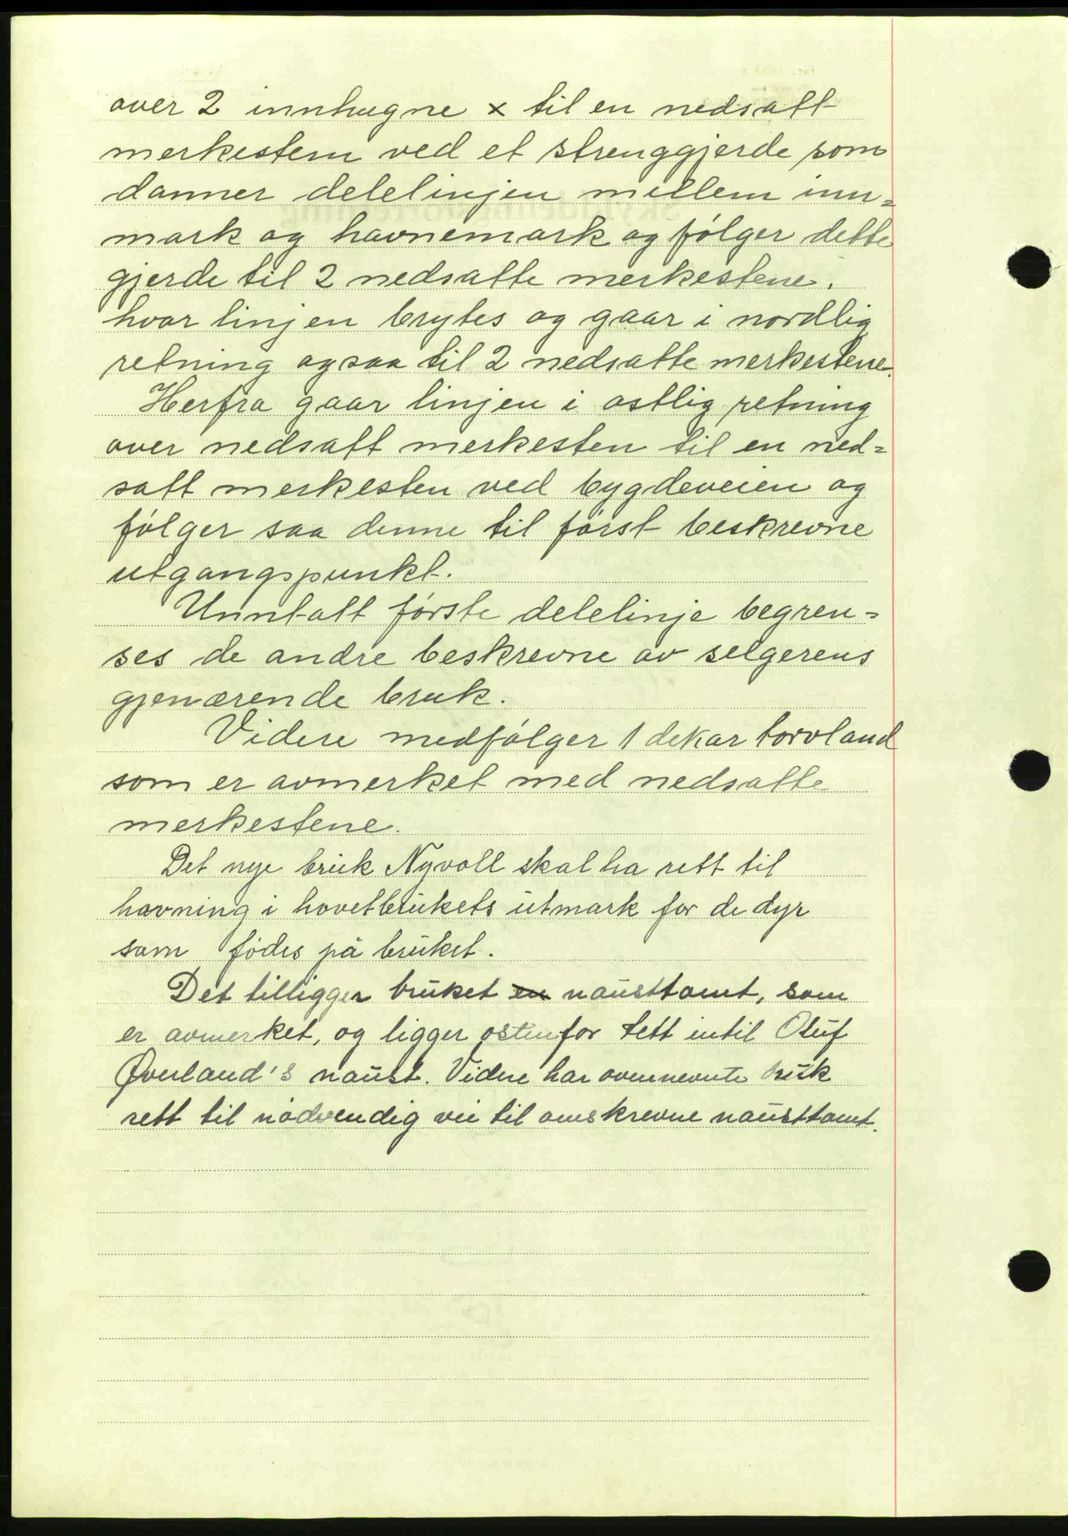 over 2 innhugne x til en nedsatt
merkesten ved et strenggjerde som
danner delelinjen mellem inn=
mark og havnemark og følger dette
gjerde til 2 nedsatte merkestene.
hvor linjen brytes og gaar i nordlig
retning ogsaa til 2 nedsatte merkestene.
Herfra gaar linjen i østlig retning
over nedsatt merkesten til en ned=
satt merkesten ved bygdeveien og
følger saa denne til først beskrevne
utgangspunkt.
Unntatt første delelinje begren=
ses de andre beskrevne av selgerens
gjenærende bruk.
Videre medfølger 1 dekar torvland
som er avmerket med nedsatte
merkestene.
Det nye bruk Nyvoll skal ha rett til
havning i hovetbrukets utmark for de dyr
som fødes på bruket.
Det tilligger bruket en nausttomt, som
er avmerket, og ligger østenfor tett intil Oluf
Øverland's naust. Videre har overnevnte bruk
rett til nødvendig vei til omskrevne nausttomt.
Skylddelingsforretning